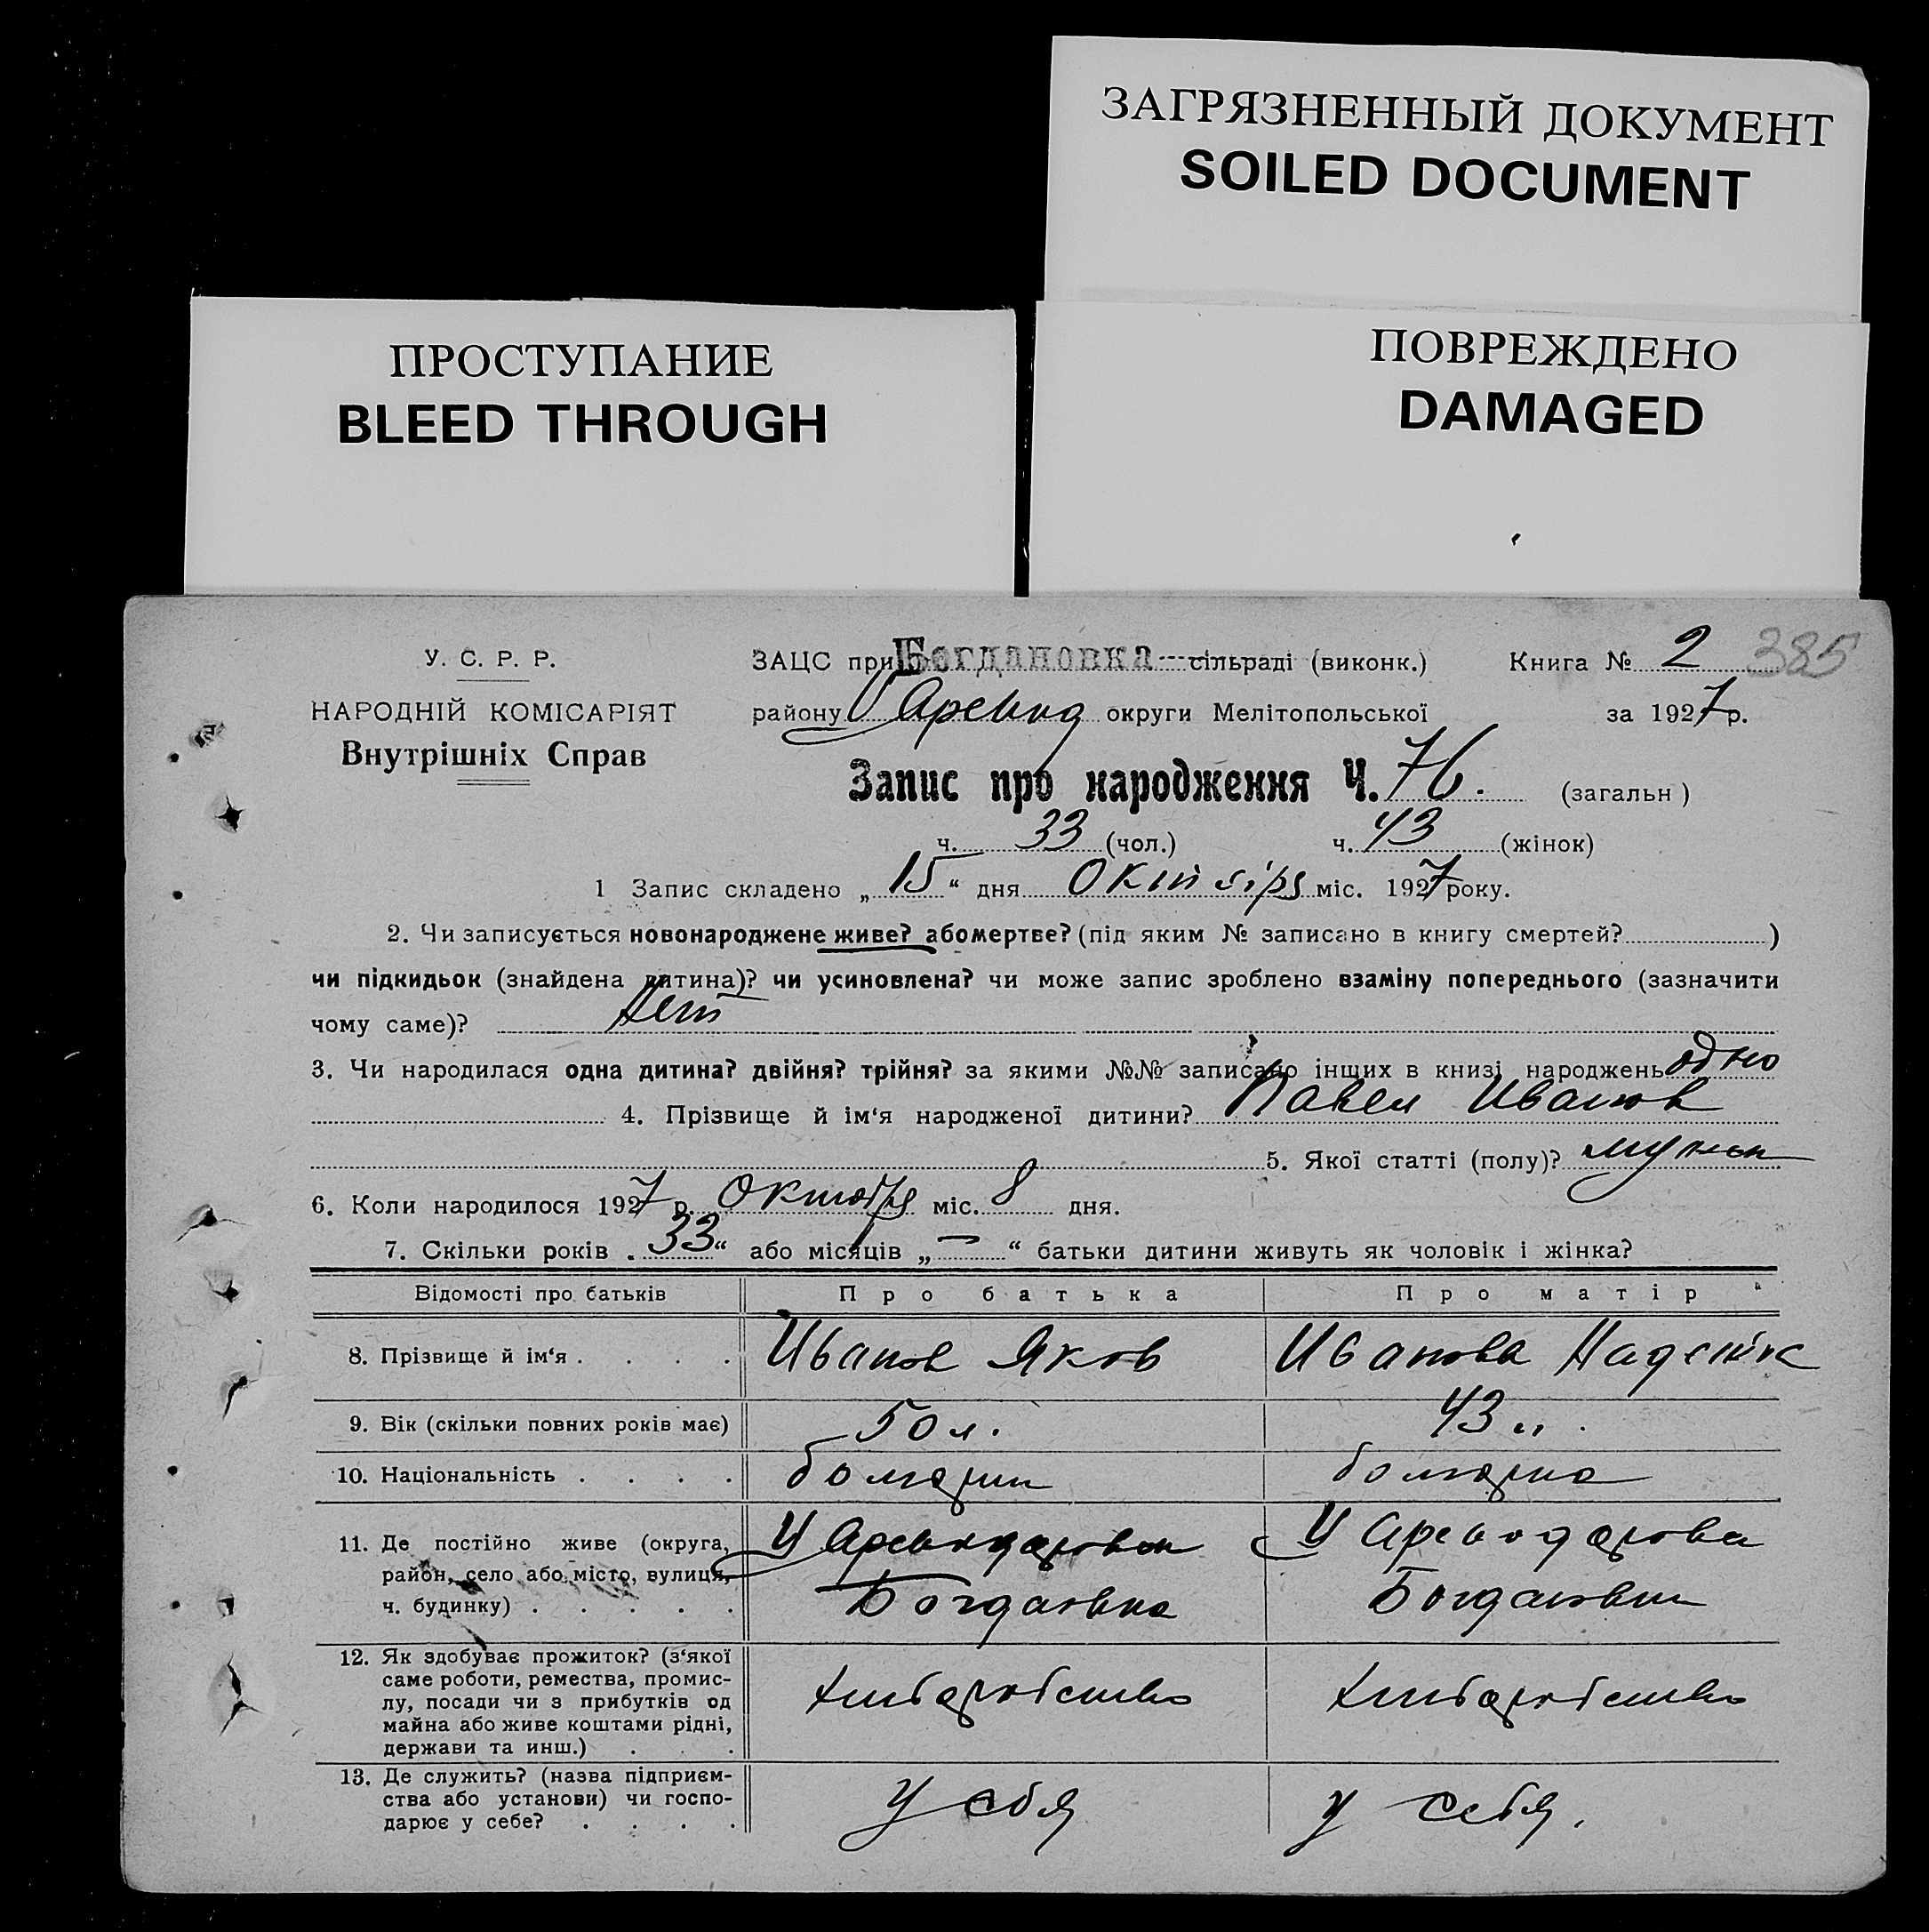 ЗАГРЯЗНЕННЫЙ ДОКУМЕНТ
SOILED DOCUMENT
ПРОСТУПАНИЕ
BLEED THROUGH
ПОВРЕЖДЕНО
DAMAGED
У. С. Р. Р.
НАРОДНІЙ КОМІСАРІЯТ
Внутрішніх Справ
ЗАЦС при Богдановка сільраді (виконк.) Книга № 2 385
району округи Мелітопольської за 1927 р.
Запис про народження Ч. 76. (загальн)
ч. 33 (чол.) ч. 43 (жінок)
1 Запис складено „15“ дня Октября міс. 1927 року.
2. Чи записується новонароджене живе? або мертве? (під яким № записано в книгу смертей? )
чи підкидьок (знайдена дитина)? чи усиновлена? чи може запис зроблено взаміну попереднього (зазначити
чому саме)? Нет
3. Чи народилася одна дитина? двійня? трійня? за якими №№ записано інщих в книзі народжень одно
4. Прізвище й ім‘я народженої дитини? Павел Иванов
5. Якої статті (полу)? мужск
6. Коли народилося 1927 р. Октября міс. 8 дня.
7. Скільки років „33“ або місяців „—“ батьки дитини живуть як чоловік і жінка?
Відомості про батьків Про батька Про матір
8. Прізвище й ім‘я . . . . Иванов Яков Иванова Надежда
9. Вік (скільки повних років має) 50 л. 43 л.
10. Національність . . . . болгарин болгарка
11. Де постійно живе (округа,
район, село або місто, вулиця,
ч. будинку) . . . . .
Богдановка Богдановка
12. Як здобуває прожиток? (з‘якої
саме роботи, ремества, промис-
лу, посади чи з прибутків од
майна або живе коштами рідні,
держави та инш.) . . .
хлібаробство хлібаробство
13. Де служить? (назва підприєм-
ства або установи) чи госпо-
дарює у себе? . . . .
У себя у себя.